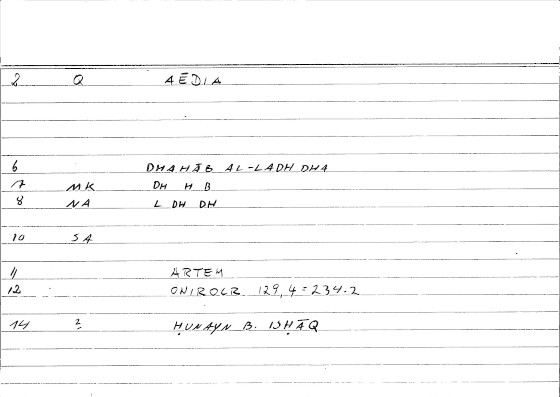 2 Q AĒDIA
6 DHAHĀB AL-LADHDHA
7 MK DH H B
8 NA L DH DH
10 SA
11 ARTEM
12 ONIROCR. 129,4=234.2
14 2 ḤUNAYN B. ISḤĀQ